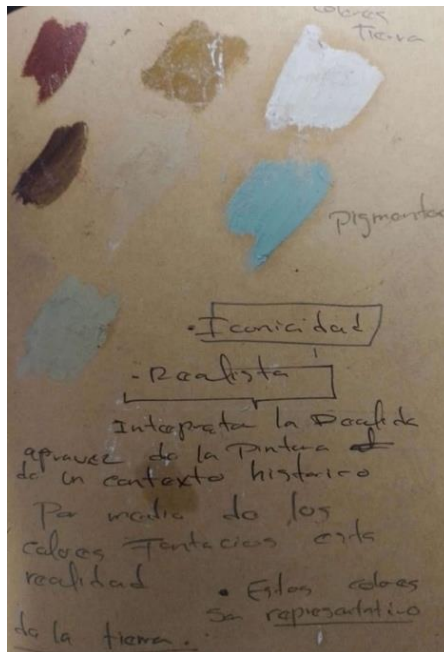 colores
Tierra
pigmentos
• Iconicidad
- Realista
Interpreta la Realida
apravez de la Pintura
de un contexto historico
Por medio de los
colores esta
realidad
• Estos colores
son representativo
de la tierra.